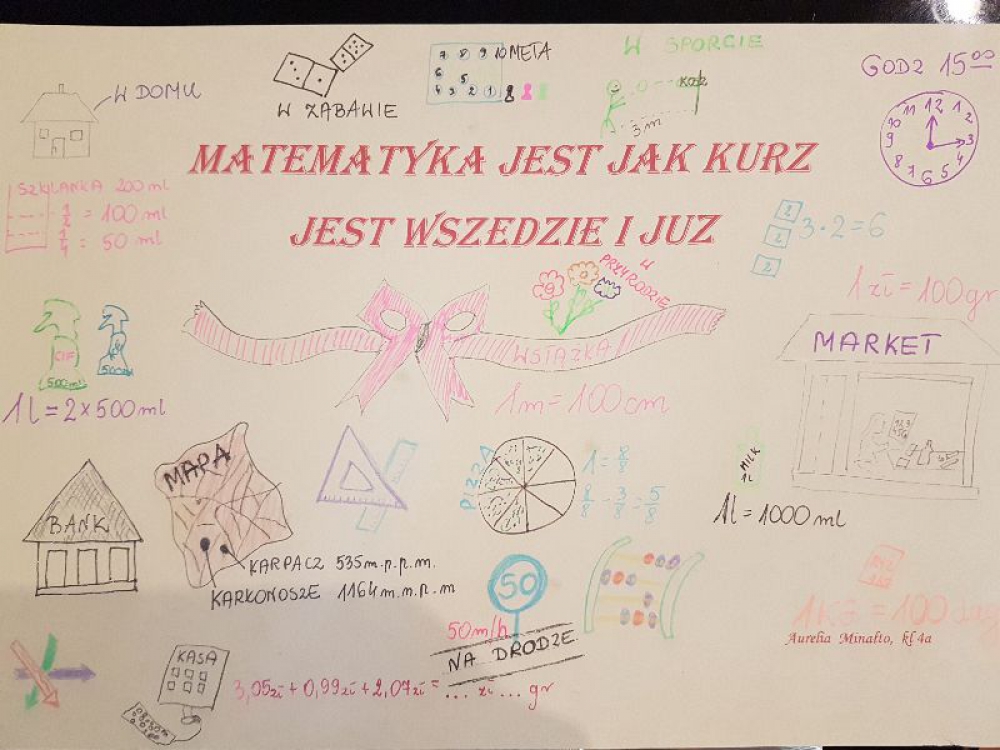 W DOMU
W ZABAWIE
7 8 9 10 META
6 5
4 3 2 1
W SPORCIE
KOSZ
3m
GODZ 15⁰⁰
11 12 1
10 2
9 3
8 4
7 6 5
MATEMATYKA JEST JAK KURZ
JEST WSZEDZIE I JUZ
SZKLANKA 200 ml
1/2 = 100 ml
1/4 = 50 ml
2
2
2
3·2=6
W PRZYRODZIE
WSTĄŻKA
1m=100cm
1 zł = 100gr
MARKET
CIF
500ml
1l = 2 x 500 ml
MILK
1L
1l = 1000 ml
BANK
MAPA
KARPACZ 535m.n.p.m.
KARKONOSZE 1164m.n.p.m
PIZZA
1 = 8/8
8/8 - 3/8 = 5/8
50
50m/h
NA DRODZE
1kg = 100dag
Aurelia Minalto, kl 4a
KASA
3,05zł + 0,99zł + 2,07zł = ... zł ... gr